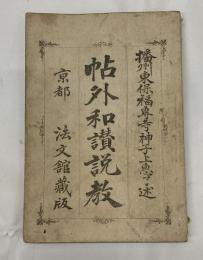 播州東保福專寺神子上惠了述
帖外和讃説教
京都 法文館藏版